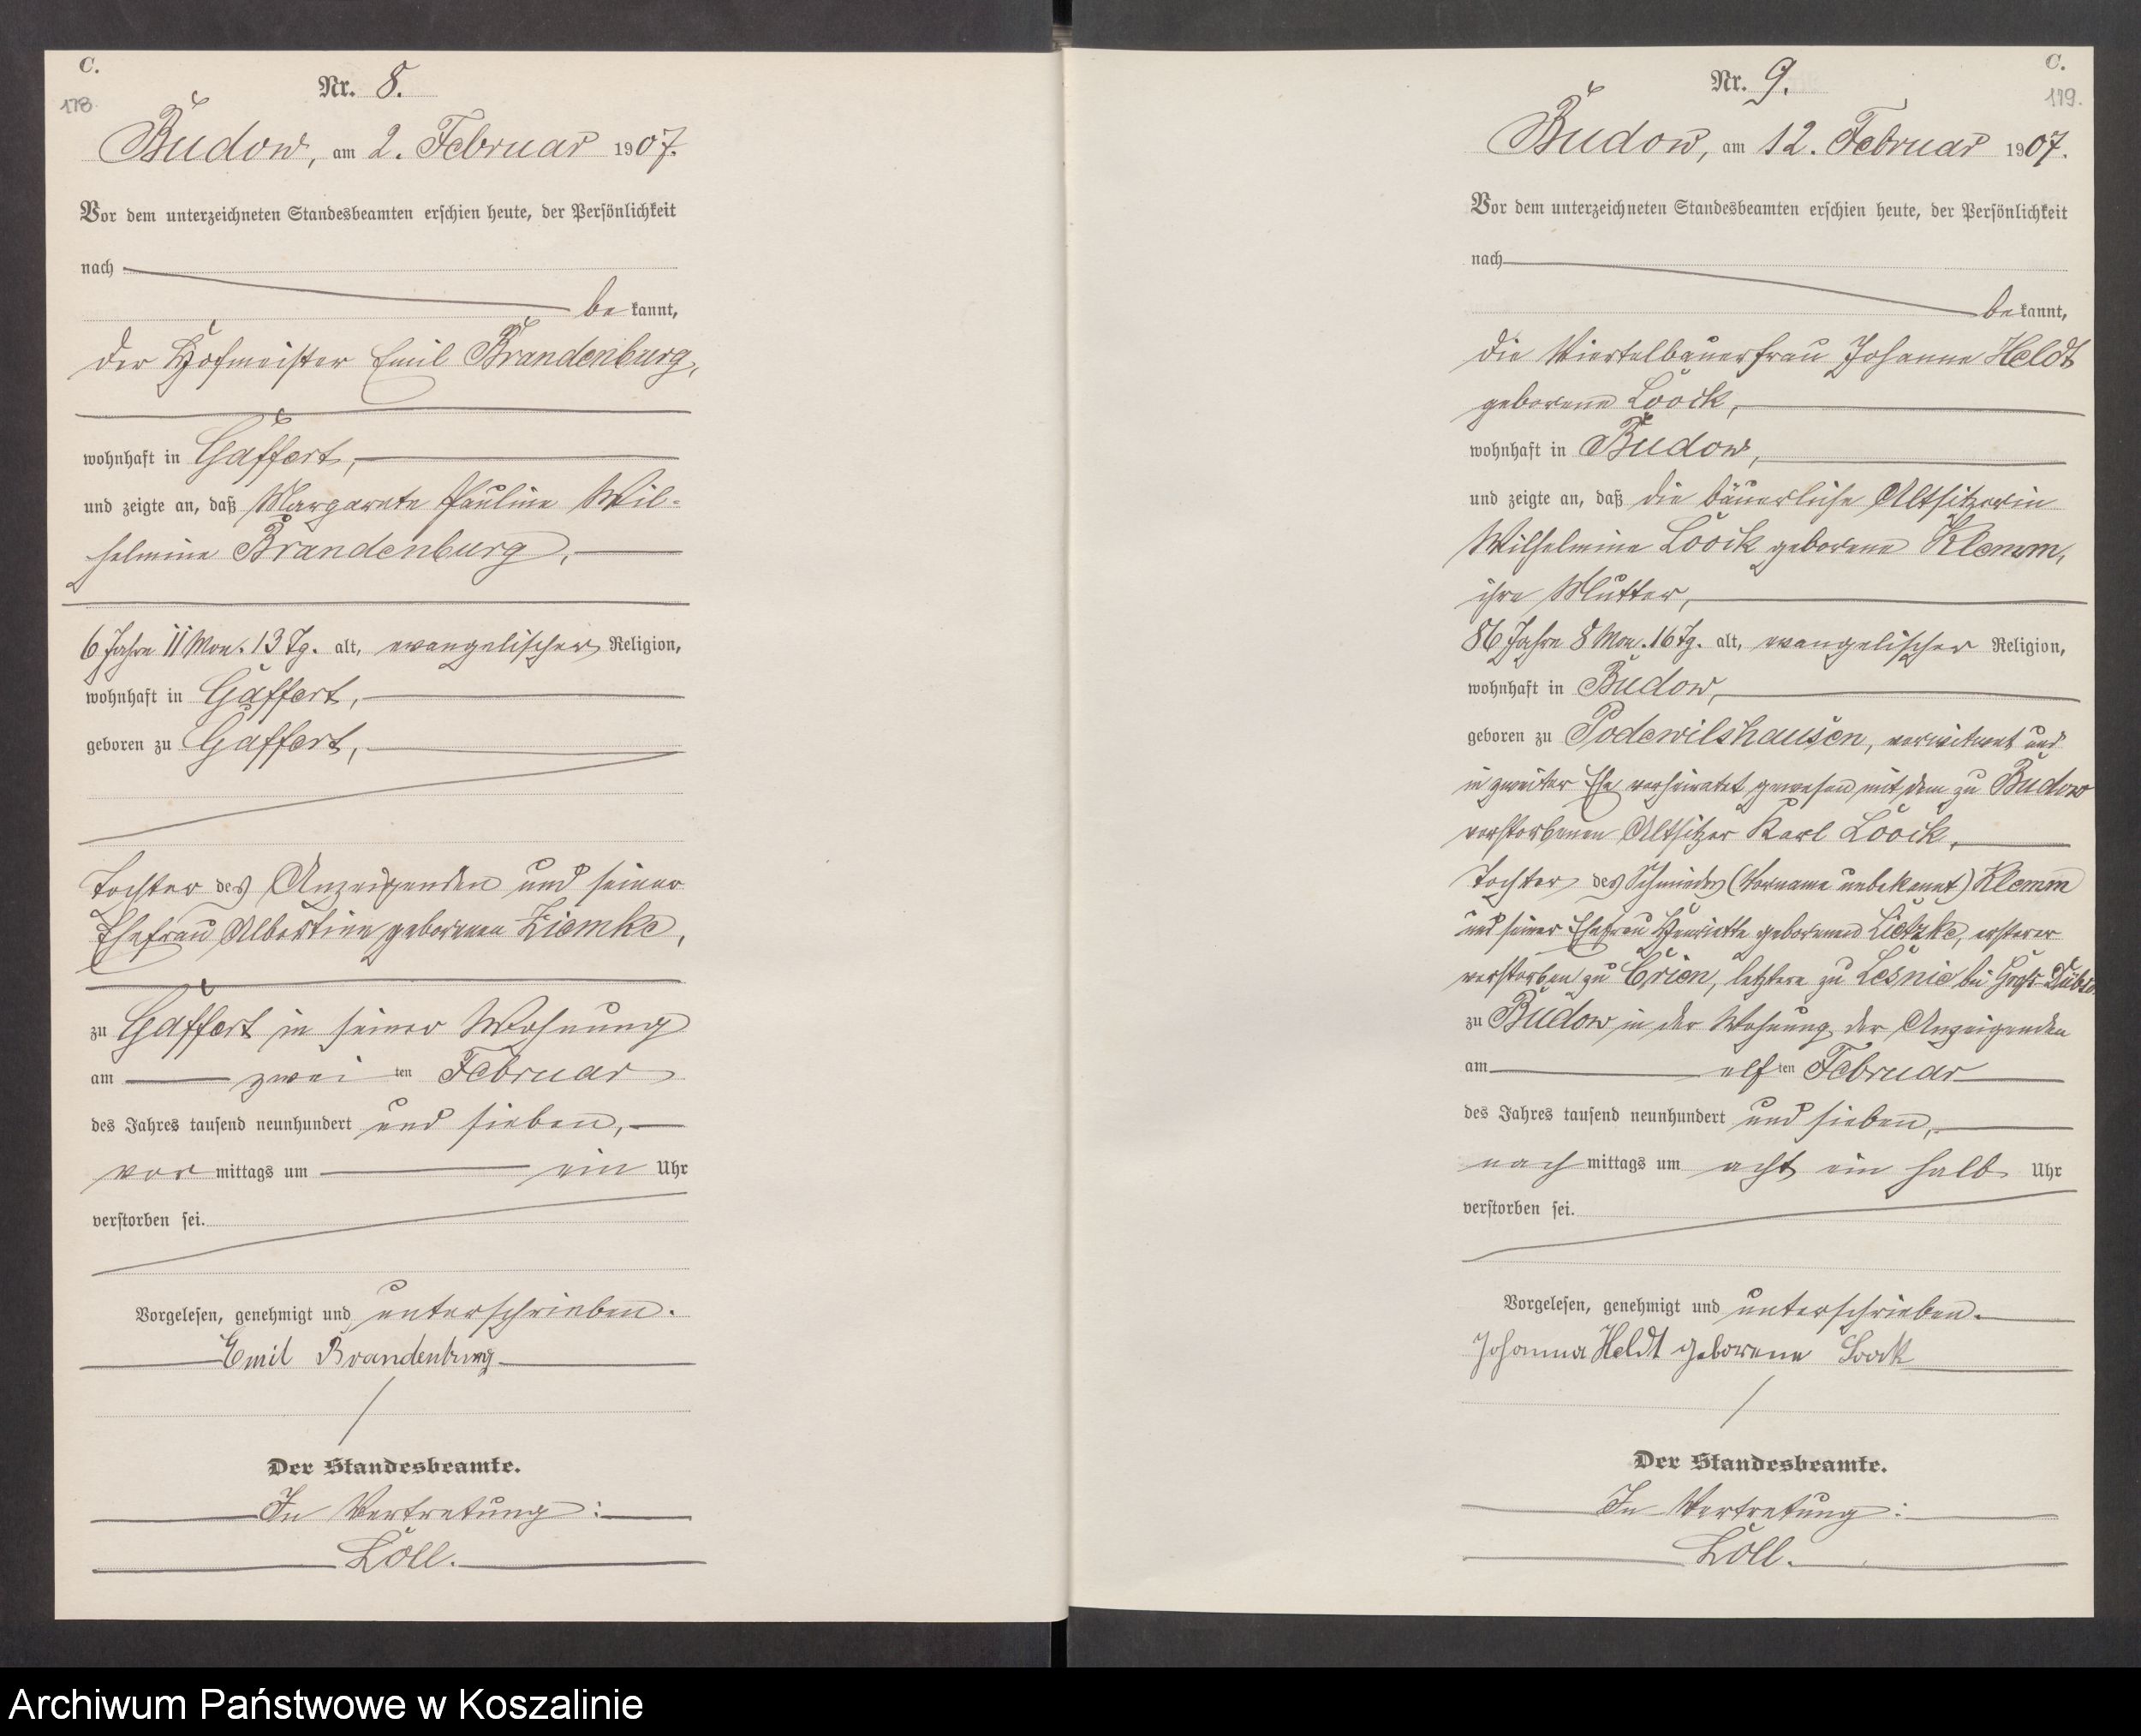 C.
178
Nr. 8.
Budow, am 2. Februar 1907.
Vor dem unterzeichneten Standesbeamten erschien heute, der Persönlichkeit
nach
be kannt,
der Hofmeister Emil Brandenburg,
wohnhaft in Gaffert,
und zeigte an, daß Margarete Pauline Wil-
helmine Brandenburg,
6 Jahre 11 Mon. 13 Tg. alt, evangelischer Religion,
wohnhaft in Gaffert,
geboren zu Gaffert,
Tochter des Anzeigenden und seiner
Ehefrau Albertine geborenen Ziemke,
zu Gaffert in seiner Wohnung
am zwei ten Februar
des Jahres tausend neunhundert und sieben,
vor mittags um ein Uhr
verstorben sei.
Vorgelesen, genehmigt und unterschrieben.
Emil Brandenburg
Der Standesbeamte.
In Vertretung:
Löll.
C.
179.
Nr. 9.
Budow, am 12. Februar 1907.
Vor dem unterzeichneten Standesbeamten erschien heute, der Persönlichkeit
nach
be kannt,
die Viertelbauerfrau Johanne Heldt
geborene Loock,
wohnhaft in Budow,
und zeigte an, daß die bäuerliche Altsitzerin
Wilhelmine Loock geborene Klemm,
ihre Mutter,
86 Jahre 8 Mon. 16 Tg. alt, evangelischer Religion,
wohnhaft in Budow,
geboren zu Podewilshausen, verwitwet und
in zweiter Ehe verheiratet gewesen mit dem zu Budow
verstorbenen Altsitzer Karl Loock,
Tochter des Schmiedes (Vorname unbekannt) Klemm
und seiner Ehefrau Henriette geborenen Lietzke, ersterer
verstorben zu Crien, letztere zu Lesnie bei Groß-Dübsow
zu Budow in der Wohnung der Anzeigenden
am elf ten Februar
des Jahres tausend neunhundert und sieben,
nach mittags um acht ein halb Uhr
verstorben sei.
Vorgelesen, genehmigt und unterschrieben.
Johanna Heldt geborene Loock
Der Standesbeamte.
In Vertretung:
Löll.
Archiwum Państwowe w Koszalinie